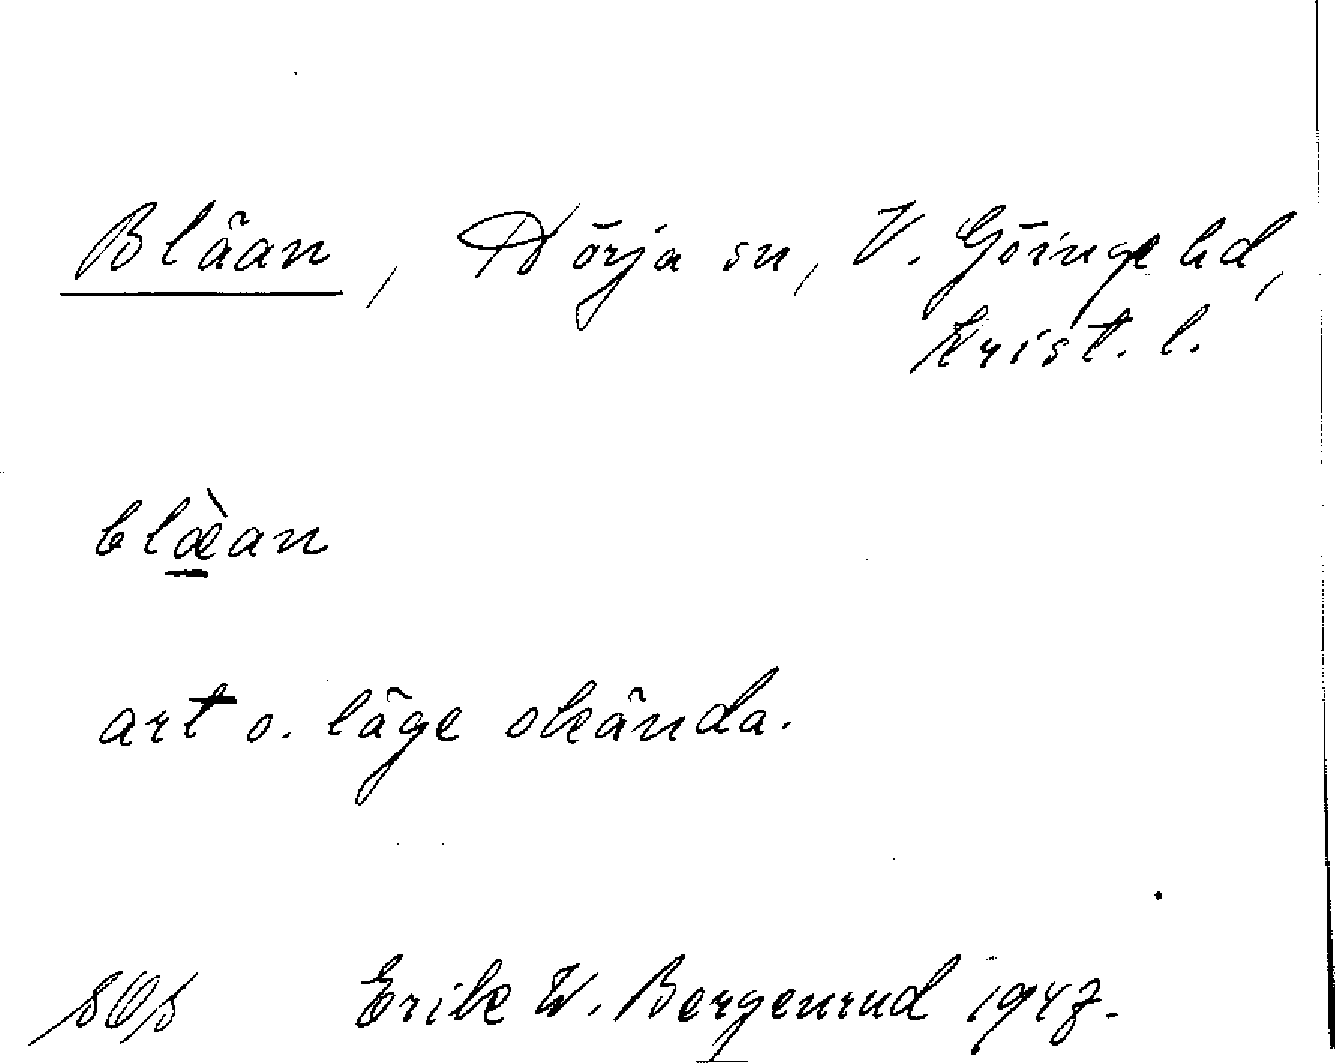 Blään, Nörja sn, V. Göinge hd,
Krist. l.
blæ̀an
art o. läge okända.
Erik W. Bergenrud 1947.